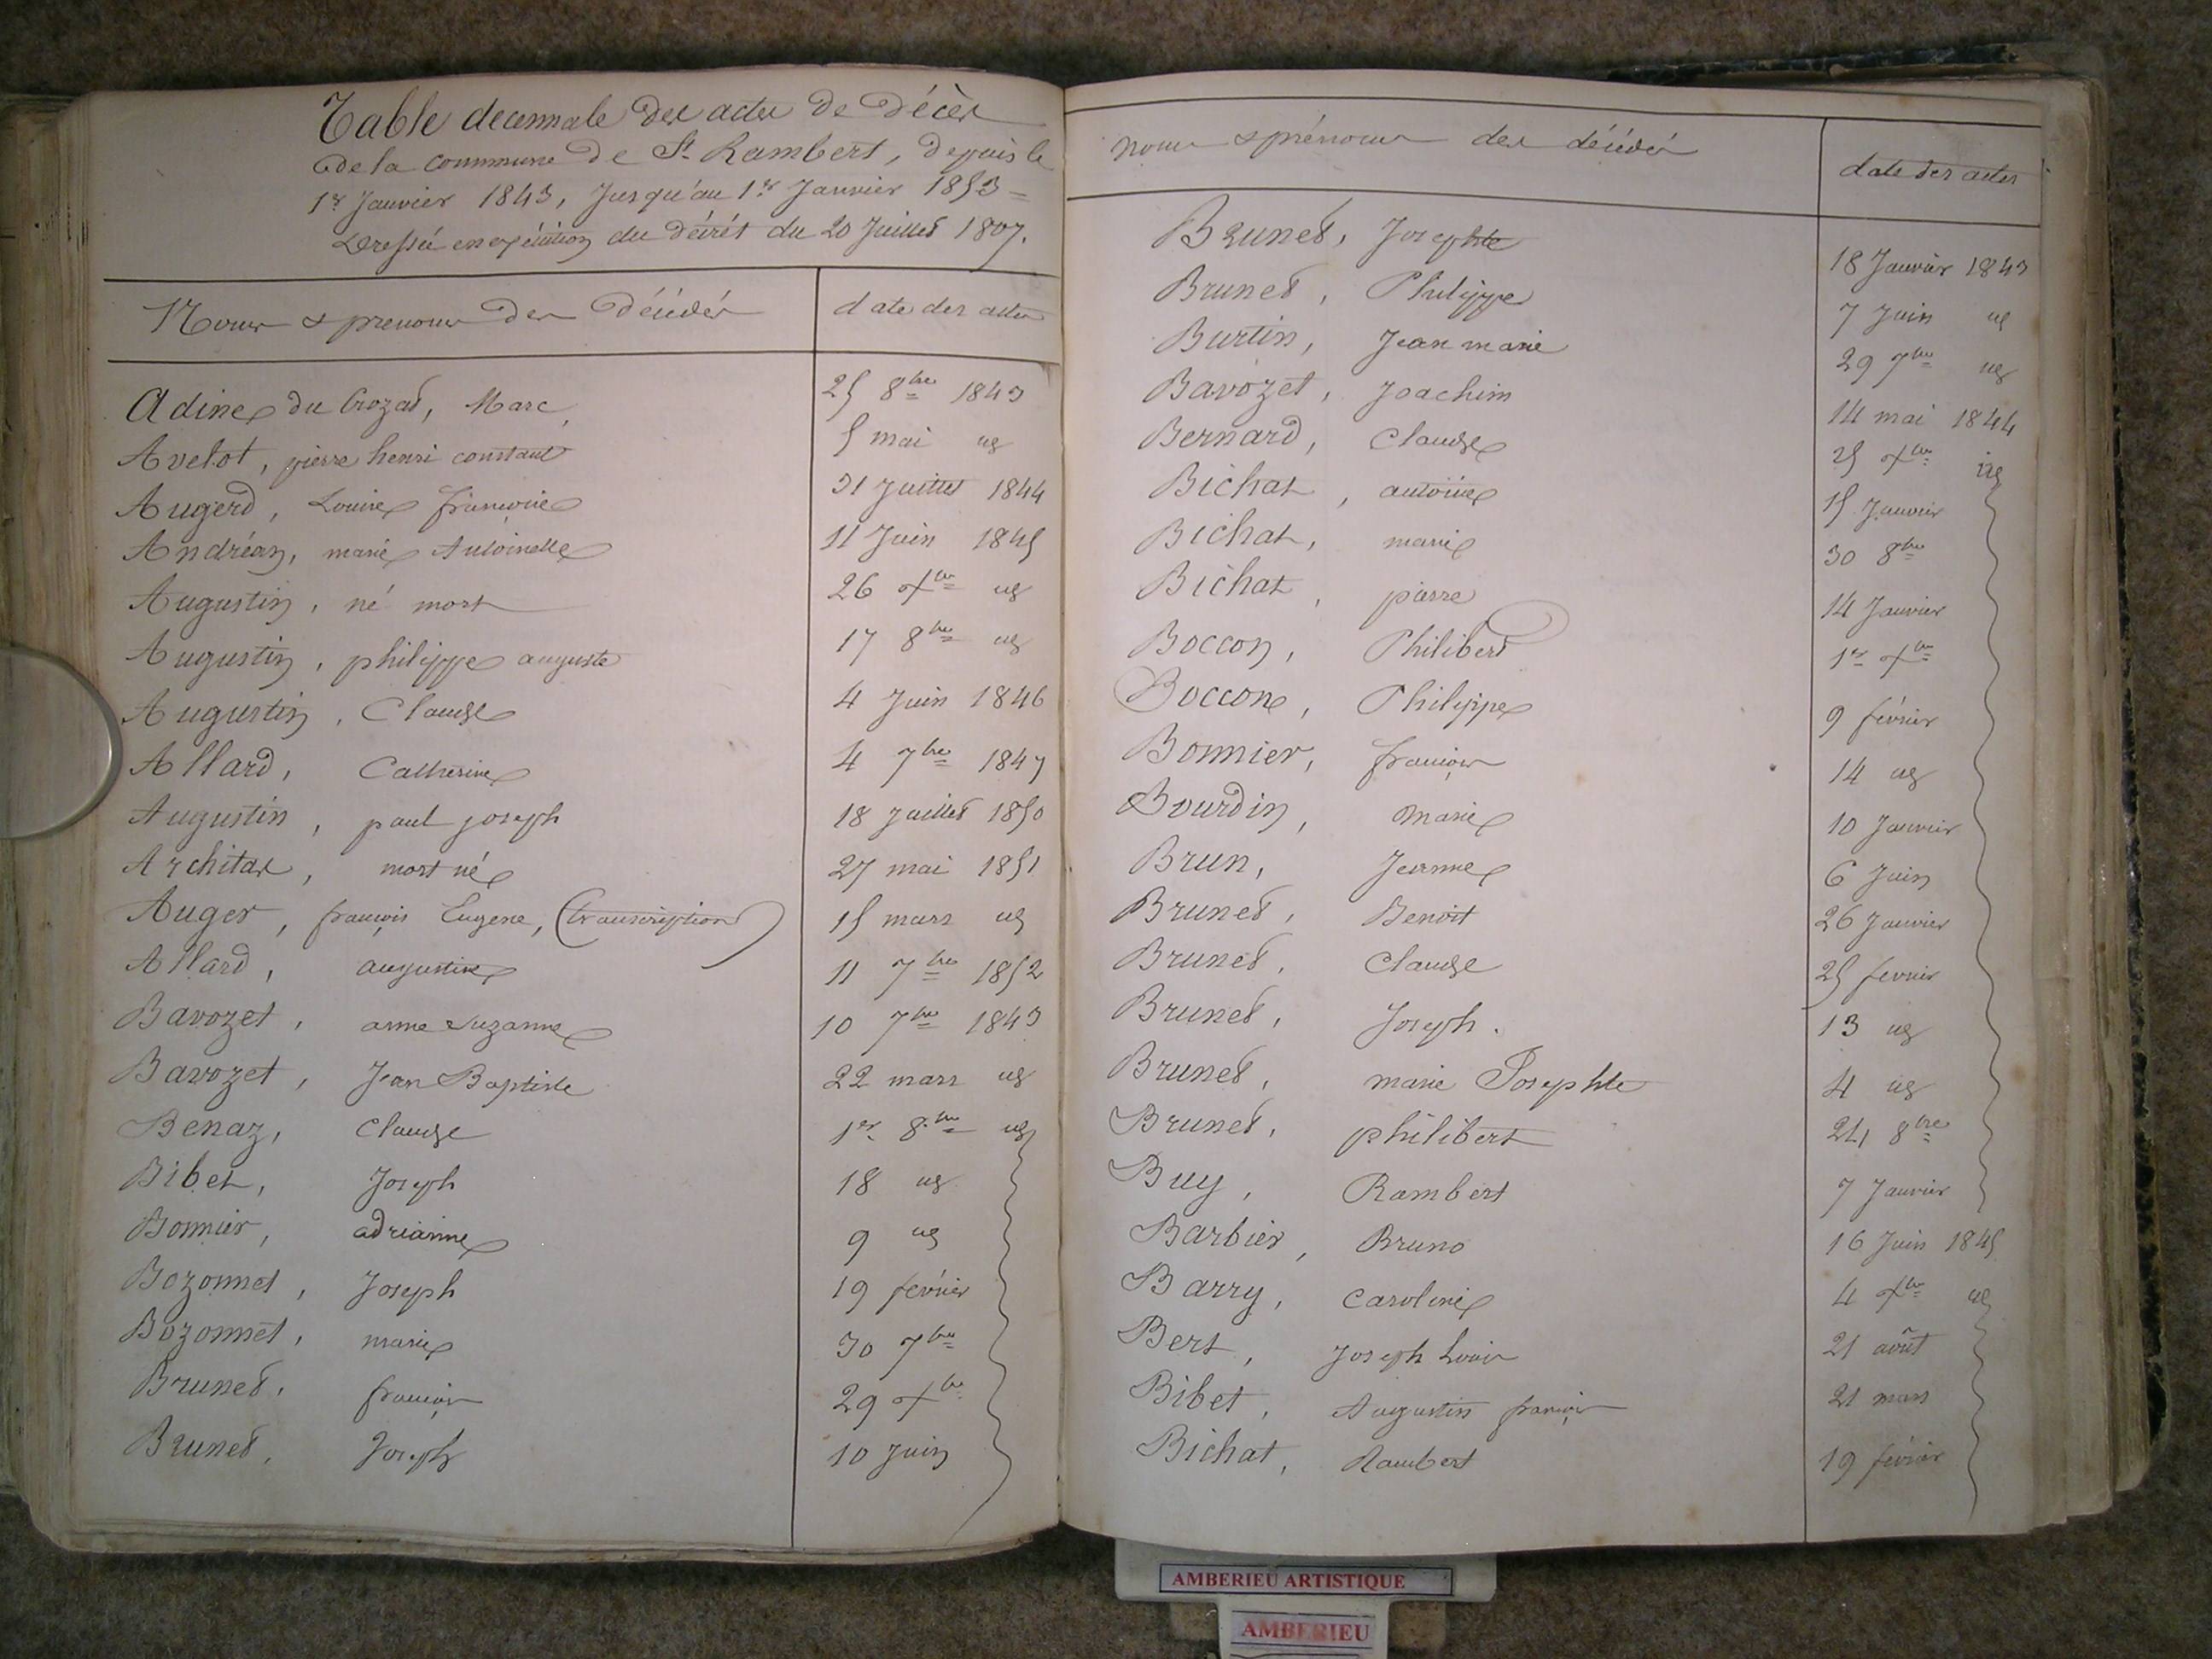 Table decennale des actes de Décès
de la commune de St Rambert, depuis le
1er Janvier 1843, Jusqu'au 1er Janvier 1853 =
Dressée en exécution du décrêt du 20 Juillet 1807.
Noms & prenoms des Décédés date des actes
Adine du Crozat, Marc 25 8bre 1843
Avelot, pierre henri constant 5 mai id
Augerd, Louise françoise 31 Juillet 1844
Andréan, marie Antoinette 11 Juin 1845
Augustin, né mort 26 Xbre id
Augustin, philippe auguste 17 8bre id
Augustin, Claude 4 Juin 1846
Allard, Catherine 4 7bre 1847
Augustin, paul joseph 18 Juillet 1850
Architar, mort né 27 mai 1851
Auger, françois Eugene, (transcription) 15 mars id
Allard, augustine 11 7bre 1852
Bavozet, anne Suzanne 10 7bre 1843
Bavozet, Jean Baptiste 22 mars id
Benaz, Claude 1er 8bre id
Bibet, Joseph 18 id
Bonnier, adrianne 9 id
Bozonnet, Joseph 19 février
Bozonnet, marie 30 7bre
Brunet, françois 29 Xbre
Brunet, Joseph 10 Juin
noms & prénoms des décédés date des actes
Brunet, Josephte 18 Janvier 1843
Brunet, Philippe 7 Juin id
Burtin, Jean marie 29 7bre id
Bavozet, Joachim 14 mai 1844
Bernard, Claude 25 Xbre id
Bichat, antoine 15 Janvier
Bichat, marie 30 8bre
Bichat, pierre 14 Janvier
Boccon, Philibert 1er Xbre
Boccon, Philippe 9 février
Bonnier, françois 14 id
Bourdin, Marie 10 Janvier
Brun, Jeanne 6 Juin
Brunet, Benoit 26 Janvier
Brunet, Claude 25 fevrier
Brunet, Joseph. 13 id
Brunet, marie Josephte 4 id
Brunet, philibert 21 8bre
Buy, Rambert 7 Janvier
Barbier, Bruno 16 Juin 1845
Barry, Caroline 4 Xbre id
Bert, Joseph Louis 21 août
Bibet, Augustin françois 21 mars
Bichat, Rambert 19 février
AMBERIEU ARTISTIQUE
AMBERIEU